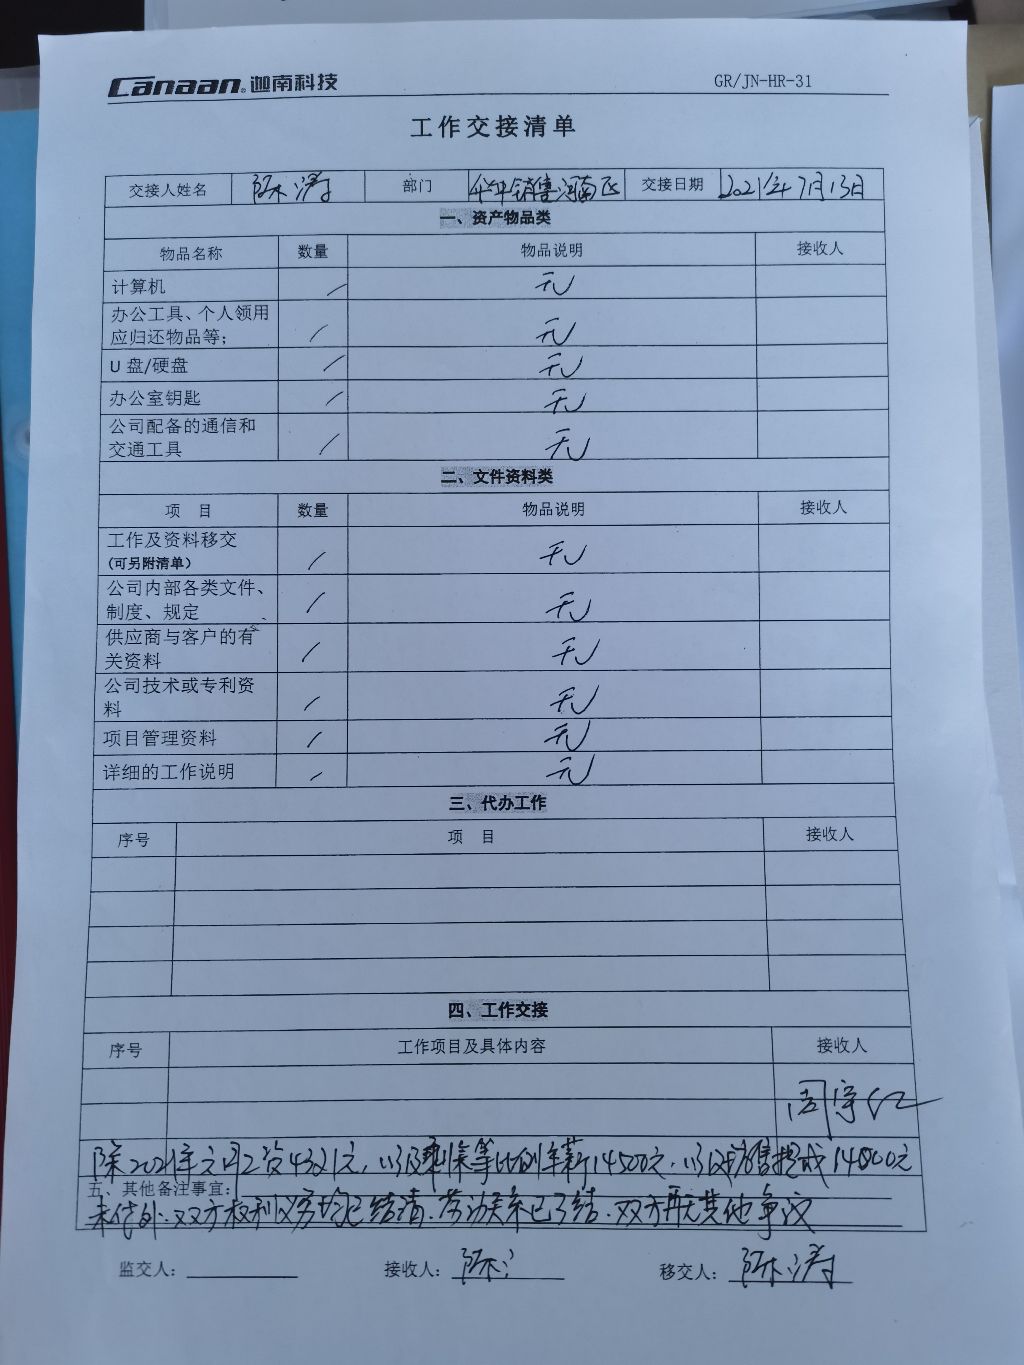 Canaan®迦南科技 GR/JN-HR-31
工作交接清单
交接人姓名 陈涛 部门 华中销售河南区 交接日期 2021年7月13日
一、资产物品类
物品名称 数量 物品说明 接收人
计算机 / 无
办公工具、个人领用
应归还物品等; / 无
U盘/硬盘 / 无
办公室钥匙 / 无
公司配备的通信和
交通工具 / 无
二、文件资料类
项 目 数量 物品说明 接收人
工作及资料移交
(可另附清单) / 无
公司内部各类文件、
制度、规定 / 无
供应商与客户的有
关资料 / 无
公司技术或专利资
料 / 无
项目管理资料 / 无
详细的工作说明 / 无
三、代办工作
序号 项 目 接收人
四、工作交接
序号 工作项目及具体内容 接收人
除2021年六月工资4321元,以及剩余等比例年薪14500元,以及销售提成14000元
五、其他备注事宜:
未付外,双方权利义务均已结清.劳动关系已了结.双方再无其他争议
监交人: 接收人: 移交人: 陈涛